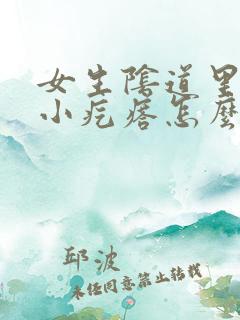 女生陰道里
小疙瘩怎麼
邱波
未经同意禁止转载